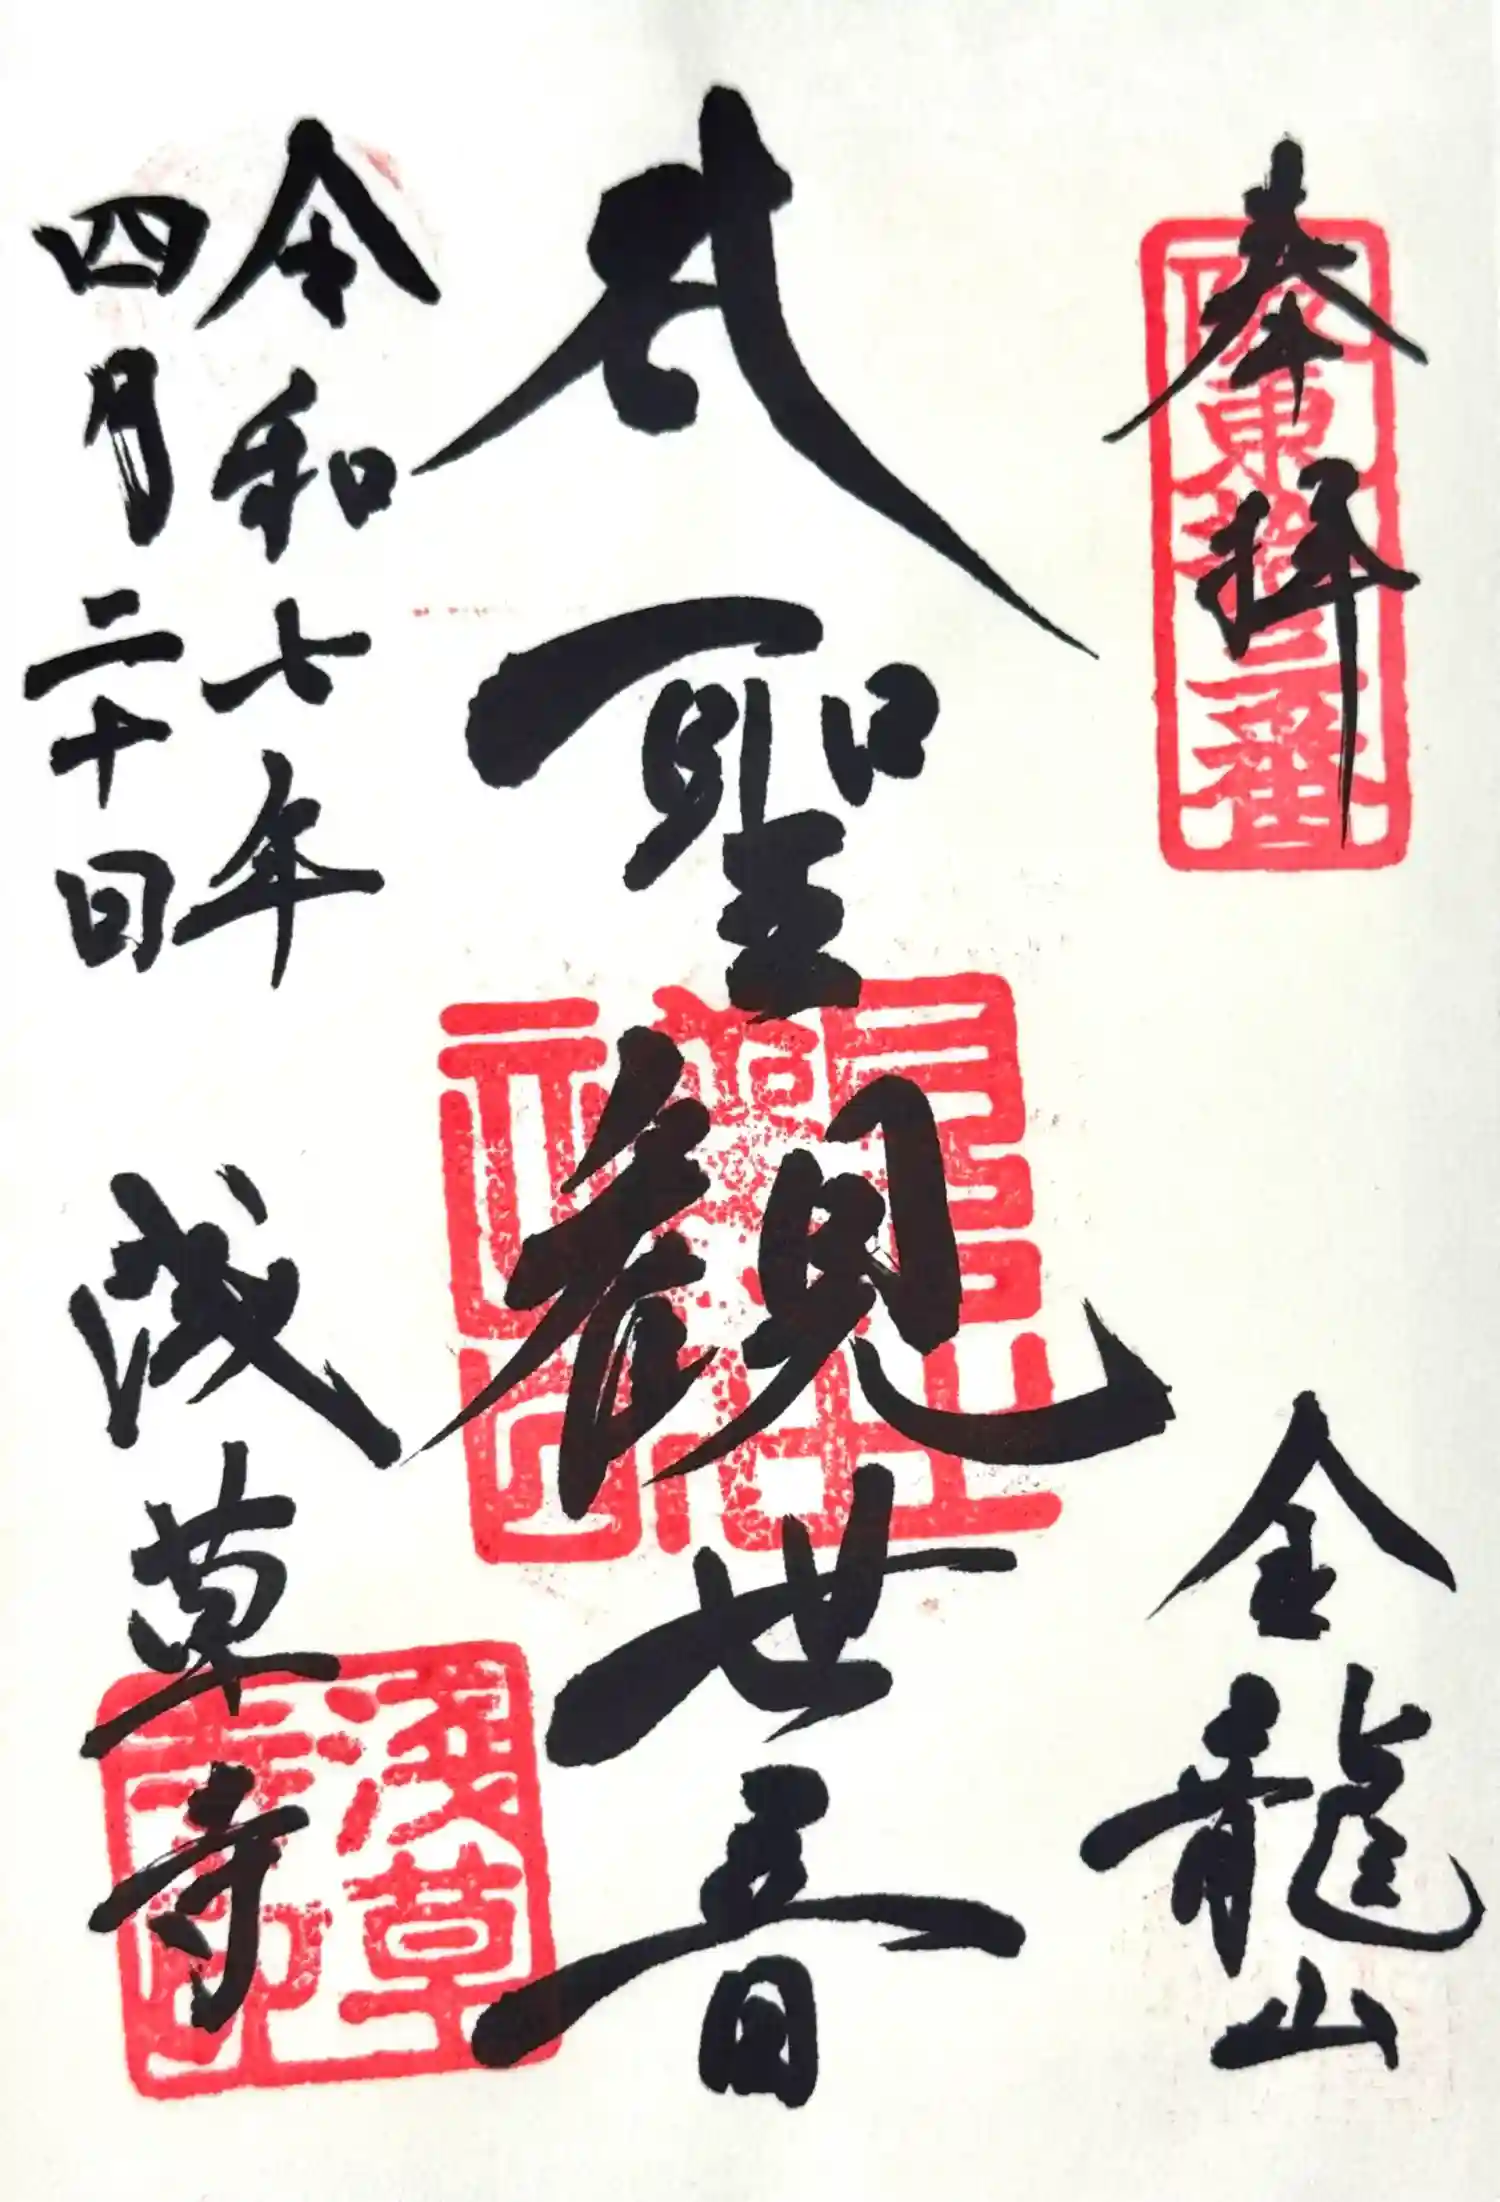 奉拝
坂東拾三番
金龍山
聖観世音
令和七年
四月二十日
浅草寺
浅草寺印